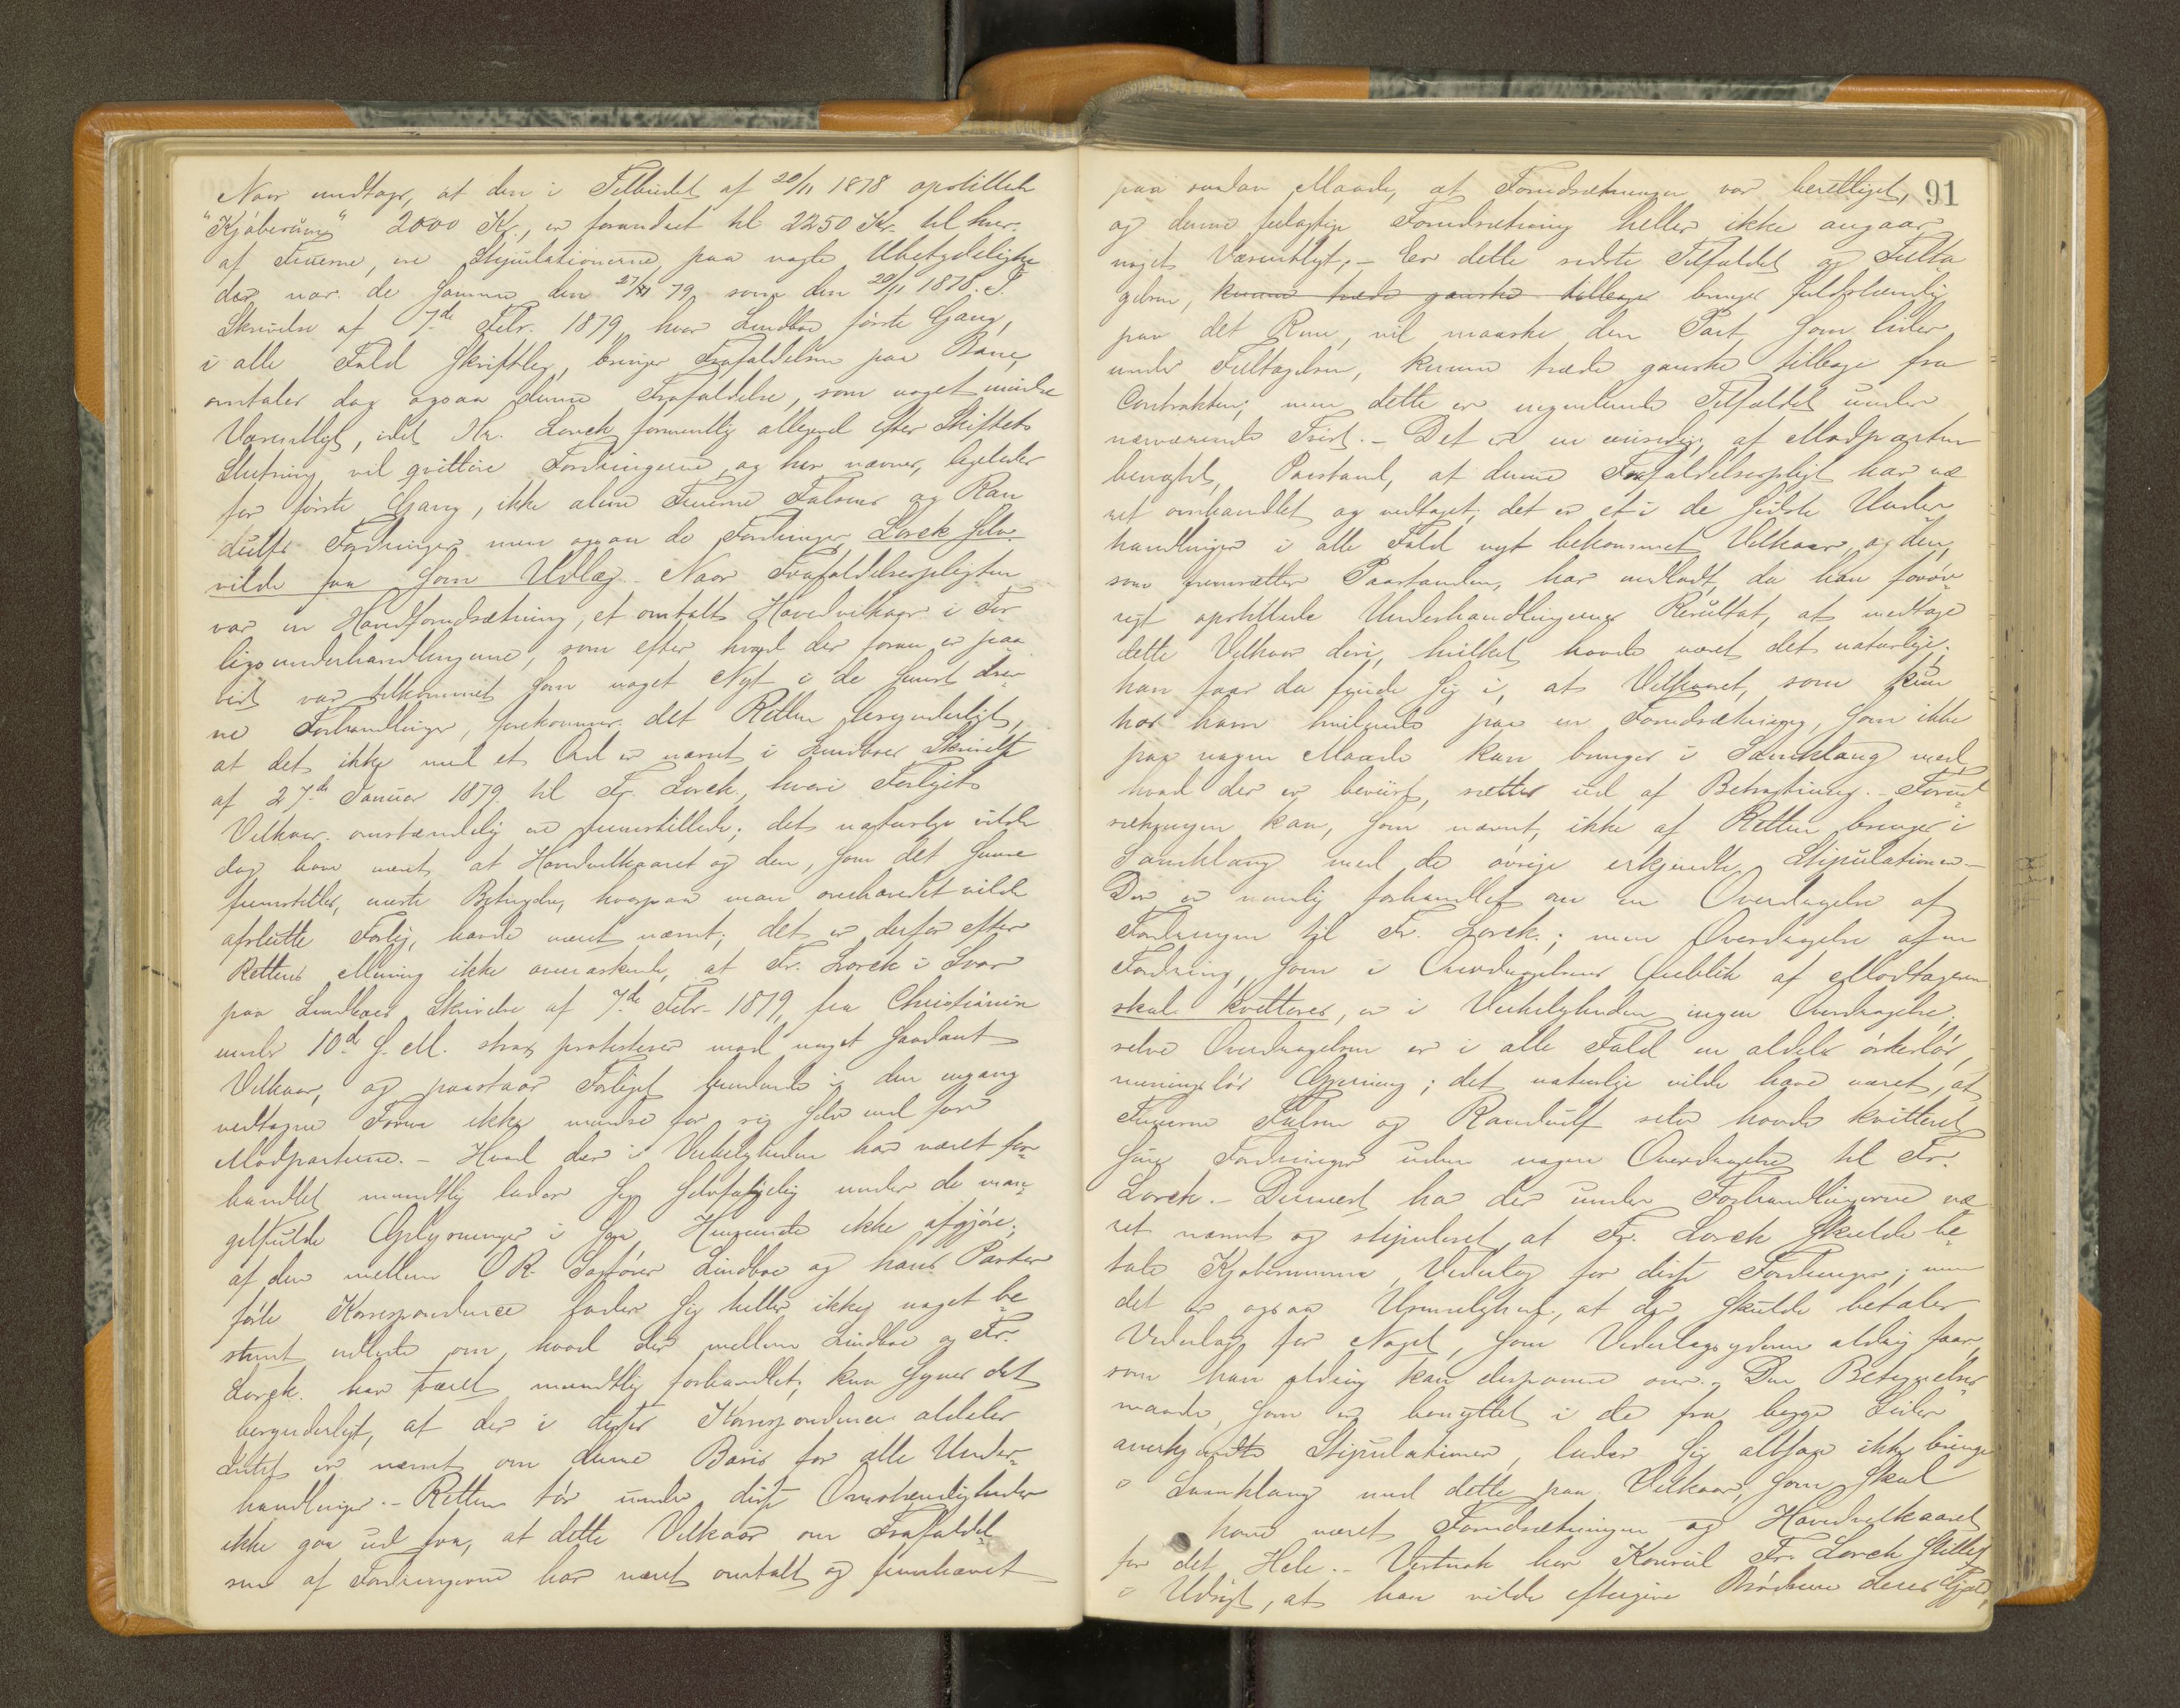 Naar undtages, at den i Tilbudet af 20/11 1878 opstillede
"Kjøbesum" 2000 Kr., er forandret til 2250 Kr. til hver
af Firmerne, ere Stipulationerne paa nogle Ubetydeligheder
nær de samme den 27/1 79 som den 20/11 1878. I
Skrivelse af 7de Febr. 1879, hvor Lindboe første Gang,
i alle Fald skriftlig, bringer Frafaldelsen paa Bane,
omtales dog ogsaa denne Frafaldelse, som noget mindre
Væsentligt, idet Hr. Lorck formentlig alligevel efter Skiftets
Slutning vil qvittere Fordringerne, og her nævnes, ligeledes
for første Gang, ikke alene Firmerne Falsens og Ran
dulfs Fordringer men ogsaa de Fordringer Lorck selv
vilde faa som Udlæg. Naar Frafaldelsespligten
var en Hovedforudsætning, et omtalt Hovedvilkaar i For
ligsunderhandlingerne, som efter hvad der foran er paa
vist var tilkommet som noget Nyt i de senest drev
ne Forhandlinger, forekommer det Retten besynderligt,
at det ikke med et Ord er nævnt i Lindboes Skrivelse
af 27de Januar 1879 til Fr. Lorck, hvori Forligets
Vilkaar omstændelig ere fremstillede; det naturlige vilde
dog have været, at Hovedvilkaaret og den, som det senere
fremstilles, eneste Betingelse, hvorpaa man overhovedet vilde
afslutte Forlig, havde været nævnt; det er derfor efter
Rettens Mening ikke overraskende, at Fr. Lorck i Svar
paa Lindboes Skrivelse af 7de Febr. 1879, fra Christiania
under 10de s. M. strax protesterer mod noget saadant
Vilkaar, og paastaar Forliget bindende i den engang
vedtagne Form ikke mindre for sig selv end for
Modparterne. – Hvad der i Virkeligheden har været for
handlet mundtlig lader sig selvfølgelig under de man
gelfulde Oplysninger i saa Henseende ikke afgjøre;
af den mellem O.R. Sagfører Lindboe og hans Parter
førte Korrespondence lader sig heller ikke noget be
stemt udlede om, hvad der mellem Lindboe og Fr.
Lorck har været mundtlig forhandlet; kun synes det
besynderligt, at der i disse Korrespondencer aldeles
Intet er nævnt om denne Basis for alle Under
handlinger. – Retten tør under disse Omstændigheder
ikke gaa ud fra, at dette Vilkaar om Frafaldel
sen af Fordringerne har været omtalt og fremhævet
91
paa saadan Maade, at Forudsætningen var berettiget,
og denne feilagtige Forudsætning heller ikke angaar
noget Væsentligt, – Er dette sidste Tilfældet og Feilta
gelsen, kunne træde ganske tilbage bringes fuldstændig
paa det Rene, vil maaske den Part, som lider
under Feiltagelsen, kunne træde ganske tilbage fra
Contrakten, men dette er ingenlunde Tilfældet under
nærværende Tvist. – Det er en eensidig, af Modparten
benegtet, Paastand, at denne Frafaldelsespligt har væ
ret omhandlet og vedtaget; det er et i de sidste Under
handlinger i alle Fald nyt bekommet Vilkaar, og den,
som fremsætter Paastanden, har undladt, da han forøv
rigt opstillede Underhandlingernes Resultat, at medtage
dette Vilkaar deri, hvilket havde været det naturlige;
han faar da finde sig i, at Vilkaaret, som kun
hos ham hvilende paa en Forudsætning, som ikke
paa nogen Maade kan bringes i Samklang med
hvad der er beviist, sættes ud af Betragtning. – Forud
sætningen kan, som nævnt, ikke af Retten bringes i
Samklang med de øvrige erkjendte Stipulationer. –
Der er nemlig forhandlet om en Overdragelse af
Fordringen til Fr. Lorck; men Overdragelse af en
Fordring, som i Overdragelsens Øieblik af Modtageren
skal kvitteres, er i Virkeligheden ingen Overdragelse;
selve Overdragelsen er i alle Fald en aldeles ørkesløs,
meningsløs Gjerning; det naturlige vilde have været, at
Firmerne Falsen og Randulf selv havde kvitteret
sine Fordringer uden nogen Overdragelse til Fr.
Lorck. – Dernæst har der under Forhandlingerne væ
ret nævnt og stipuleret at Fr. Lorck skulde be
tale Kjøbesummer, Vederlag for disse Fordringer; men
det er ogsaa Urimelighed, at der skulde betales
Vederlag for Noget, som Vederlagsyderen aldrig faar,
som han aldrig kan disponere over. Den Betegnelses
maade, som er benyttet i de fra begge Sider
anerkjendte Stipulationer, lader sig altsaa ikke bringe
i Samklang med dette paa Vilkaar, som skal
have været Forudsætningen og Hovedvilkaaret
for det Hele. – Vistnok har Konsul Fr. Lorck stillet
i Udsigt, at han vilde eftergive Brødrene deres Gjæld,